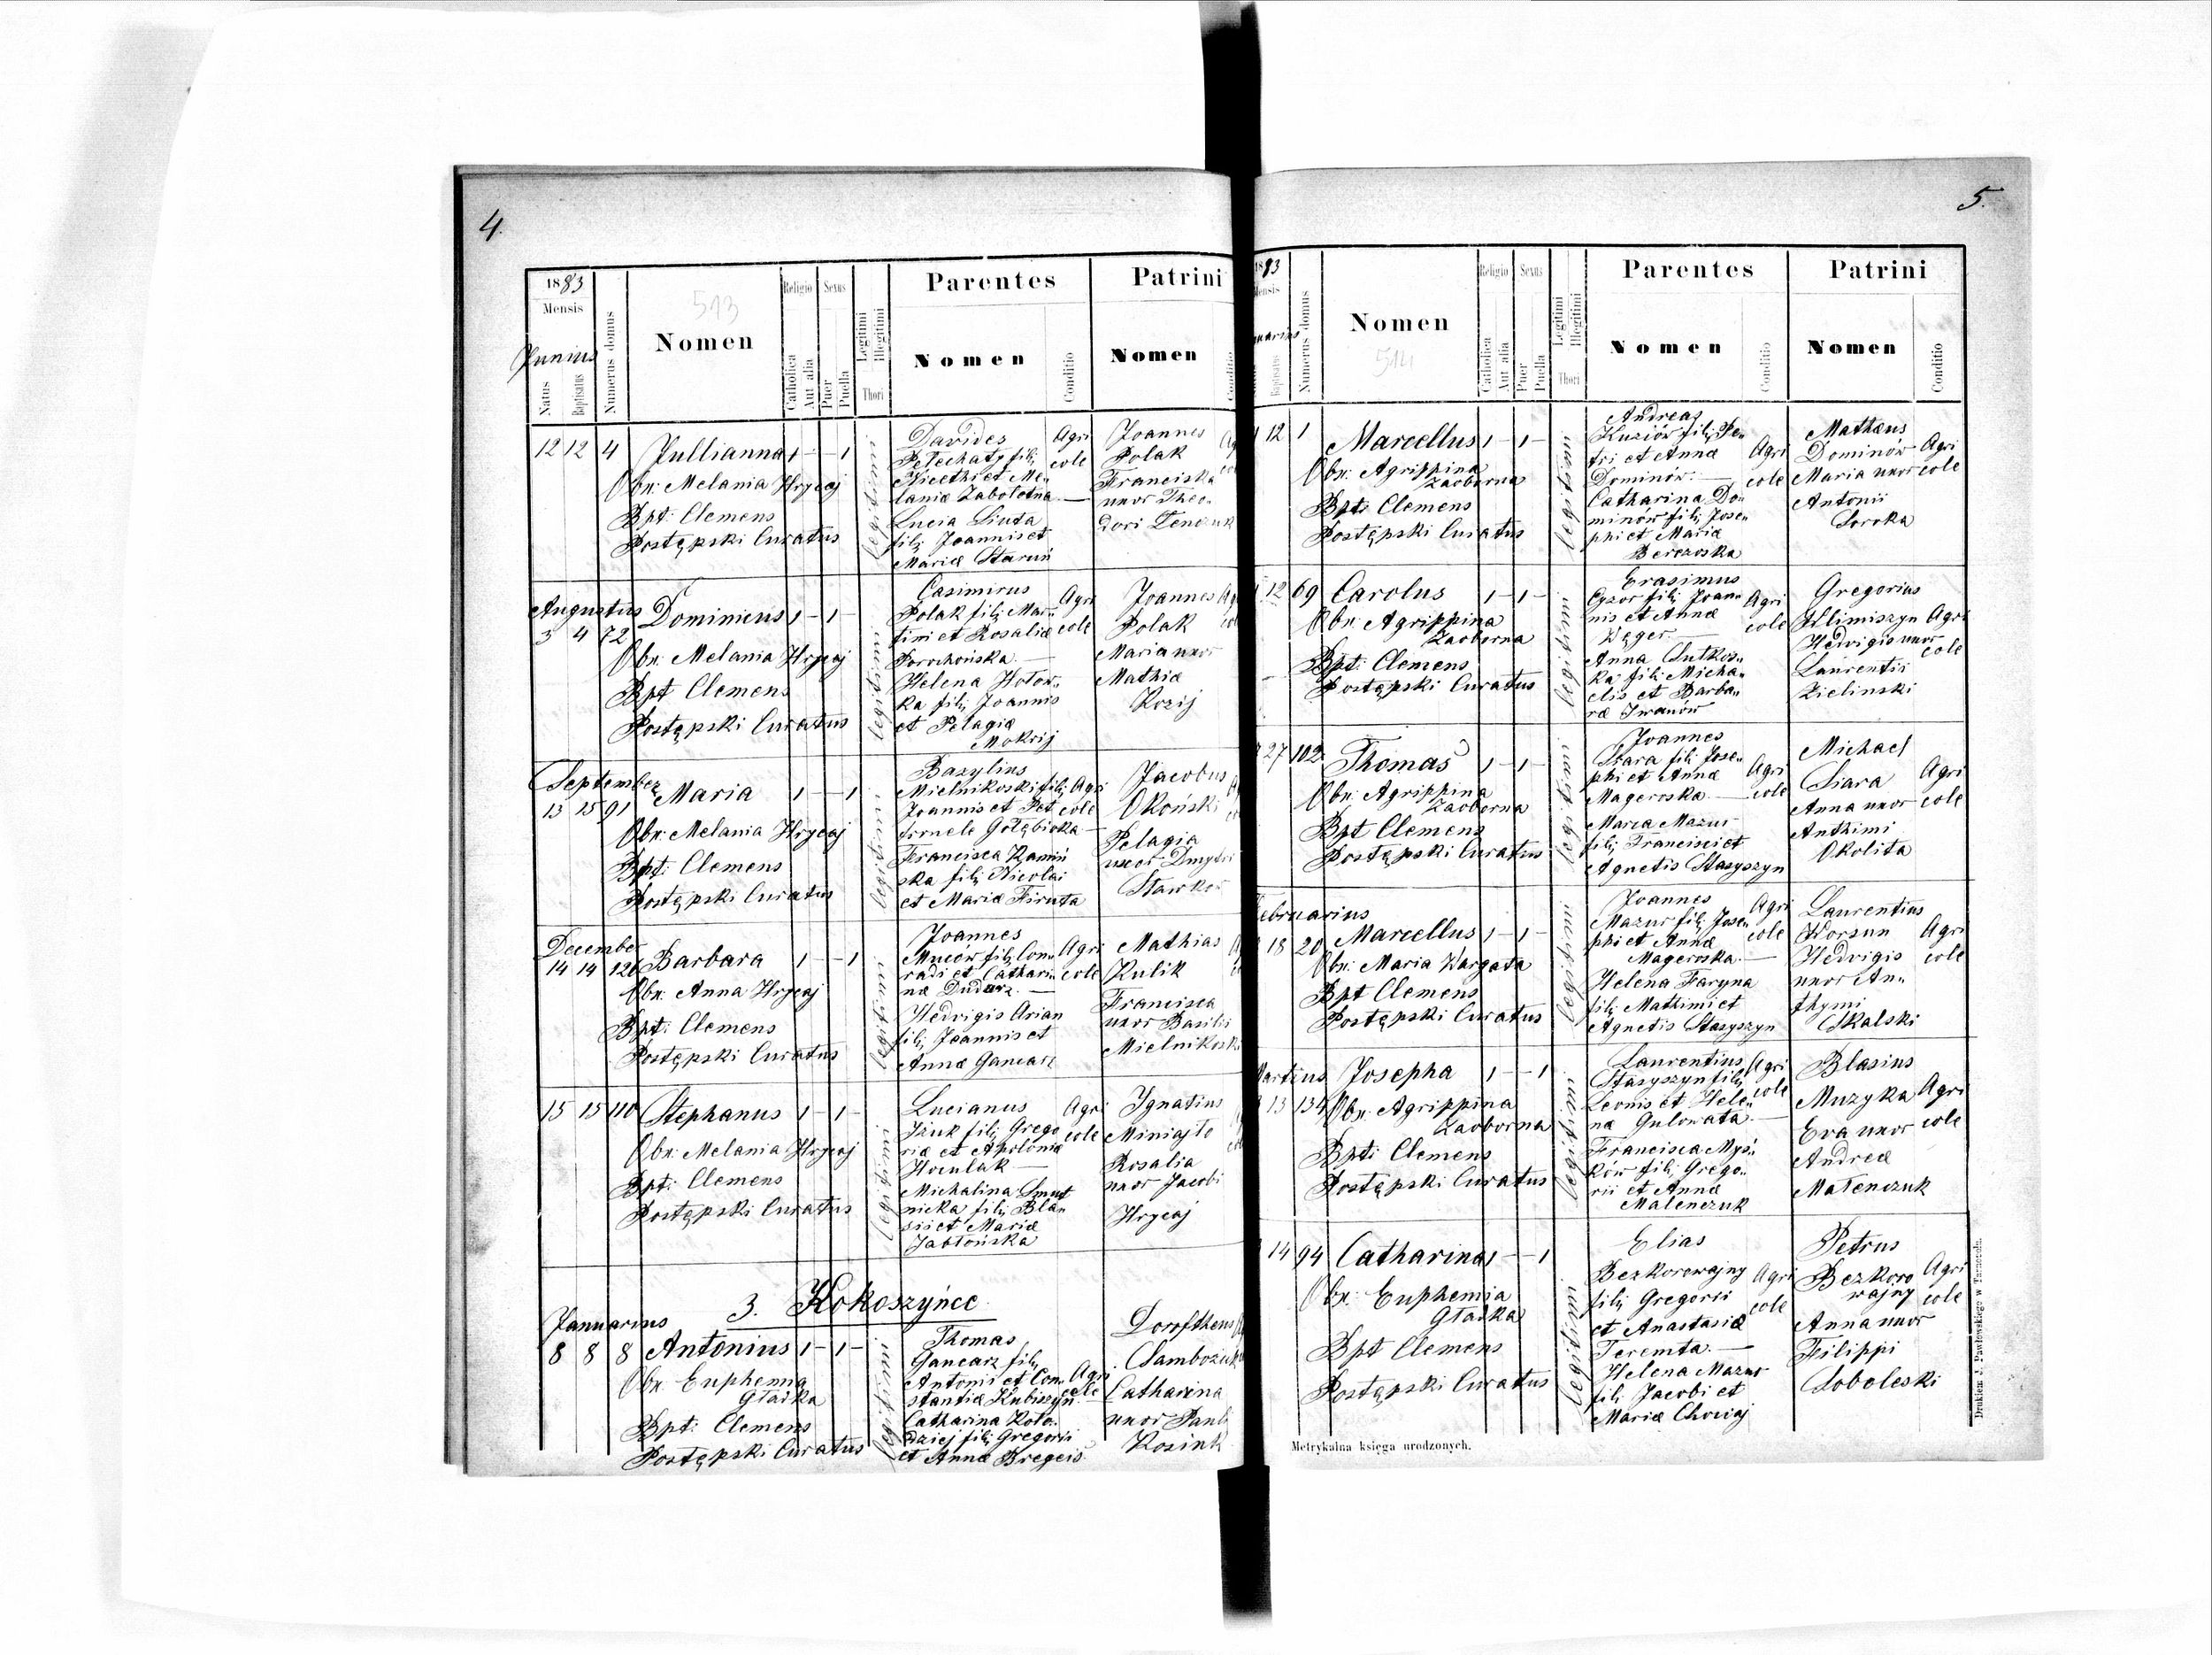 4.
1883
Mensis
Junius
Natus
Baptisatus
Numerus domus
Nomen
513
Religio
Catholica
Aut alia
Sexus
Puer
Puella
Legitimi
Illegitimi
Thori
Parentes
Nomen
Conditio
Patrini
Nomen
12 12 4 Jullianna 1 - - 1
Obs: Melania Hrycaj
Bpt: Clemens
Postępski Curatus
legitimi
Davides
Pelechaty fili
Lucia Siuta
fili Joannis et
Mariæ Staruń
Agri
cole
Joannes
Polak
Franciska
uxor Theo-
dori
Augustus
3 4 72 Dominicus 1 - 1 -
Obs: Melania Hrycaj
Bpt Clemens
Postępski Curatus
legitimi
Casimirus
Polak fili Mar-
tini et Rosaliæ
Helena Hotow-
ka fili Joannis
et Pelagiæ
Mokrij
Agri
cole
Joannes
Polak
Maria uxor
Mathiæ
Kozij
September
13 15 91 Maria 1 - - 1
Obs: Melania Hrycaj
Bpt: Clemens
Postępski Curatus
legitimi
Bazylius
Mielnikoski fili
Joannis et Pet
ronele Gołębioka
Francisca Kamiń
ska fili Nicolai
et Mariæ Firuta
Agri
cole
Jacobus
Okoński
Pelagia
uxor Dmytri
December
14 14 126 Barbara 1 - - 1
Obs: Anna Hrycaj
Bpt: Clemens
Postępski Curatus
legitimi
Joannes
Muców fili Con-
radi et Cathari-
næ Dudarz
Hedvigis Arian
fili Joannis et
Annæ Gancarz
Agri
cole
Mathias
Kulik
Francisca
uxor Basilii
Mielnikoski
15 15 110 Stephanus 1 - 1 -
Obs: Melania Hrycaj
Bpt: Clemens
Postępski Curatus
legitimi
Lucianus
fili Grego
rii et Apoloniæ
Hoculak
Michalina Smut
nicka fili Bla-
sii et Mariæ
Jabłońska
Agri
cole
Ignatius
Miniajło
Rosalia
uxor Jacobi
Hrycaj
3. Kokoszyńce
Januarius
8 8 8 Antonius 1 - 1 -
Obs: Euphemia
Gładka
Bpt: Clemens
Postępski Curatus
legitimi
Thomas
Gancarz fili
Antonii et Con-
stantiæ Kubiszyn
Catharina Koło-
dziej fili Gregorii
et Annæ
Agri
cole
Catharina
uxor Pauli
5.
1883
Mensis
Baptisatus
Numerus domus
Nomen
514
Religio
Catholica
Aut alia
Sexus
Puer
Puella
Legitimi
Illegitimi
Thori
Parentes
Nomen
Conditio
Patrini
Nomen
Conditio
12 1 Marcellus 1 - 1 -
Obs: Agrippina
Zaoborna
Bpt: Clemens
Postępski Curatus
legitimi
Andreas
Kuziów fili Pe-
tri et Annæ
Dominów
Catharina Do-
minów fili Jose-
phi et Mariæ
Berezoska
Agri
cole
Mathæus
Dominów
Maria uxor
Antonii
Soroka
Agri
cole
12 69 Carolus 1 - 1 -
Obs: Agrippina
Zaoborna
Bpt: Clemens
Postępski Curatus
legitimi
Erasimus
Cyzor fili Joan-
nis et Annæ
Węger
Anna Sutkos-
ka fili Micha-
elis et Barba-
ræ Iwanów
Agri
cole
Gregorius
Klimiszyn
Hedvigis uxor
Laurentii
Zielinski
Agri
cole
27 102 Thomas 1 - 1 -
Obs: Agrippina
Zaoborna
Bpt Clemens
Postępski Curatus
legitimi
Joannes
Siara fili Jose-
phi et Annæ
Mageroska
Maria Mazur
fili Francisci et
Agnetis Stasyszyn
Agri
cole
Michael
Siara
Anna uxor
Anthimi
Okolita
Agri
cole
Februarius
18 20 Marcellus 1 - 1 -
Obs: Maria Wargata
Bpt Clemens
Postępski Curatus
legitimi
Joannes
Mazur fili Jose-
phi et Annæ
Mageroska
Helena Faryna
fili Mathimi et
Agnetis Stasyszyn
Agri
cole
Laurentius
Korsun
Hedvigis
uxor An-
thymi
Skalski
Agri
cole
Martius
13 134 Josepha 1 - - 1
Obs: Agrippina
Zaoborna
Bpt: Clemens
Postępski Curatus
legitimi
Laurentius
Stasyszyn fili
Leonis et Hele-
næ Gulowata
Francisca Myś-
ków fili Grego-
rii et Annæ
Malenczuk
Agri
cole
Blasius
Muzyka
Eva uxor
Andreæ
Malenczuk
Agri
cole
14 94 Catharina 1 - - 1
Obs: Euphemia
Gładka
Bpt Clemens
Postępski Curatus
legitimi
Elias
Bezkorowajny
fili Gregorii
et Anastasiæ
Teremta
Helena Mazur
fili Jacobi et
Mariæ Chociaj
Agri
cole
Petrus
Bezkoro
wajny
Anna uxor
Filippi
Soboleski
Agri
cole
Metrykalna księga urodzonych.
Drukiem J. Pawłowskiego w Tarnopolu.